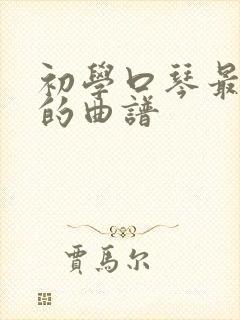 初學口琴最
的曲譜
賈馬尔